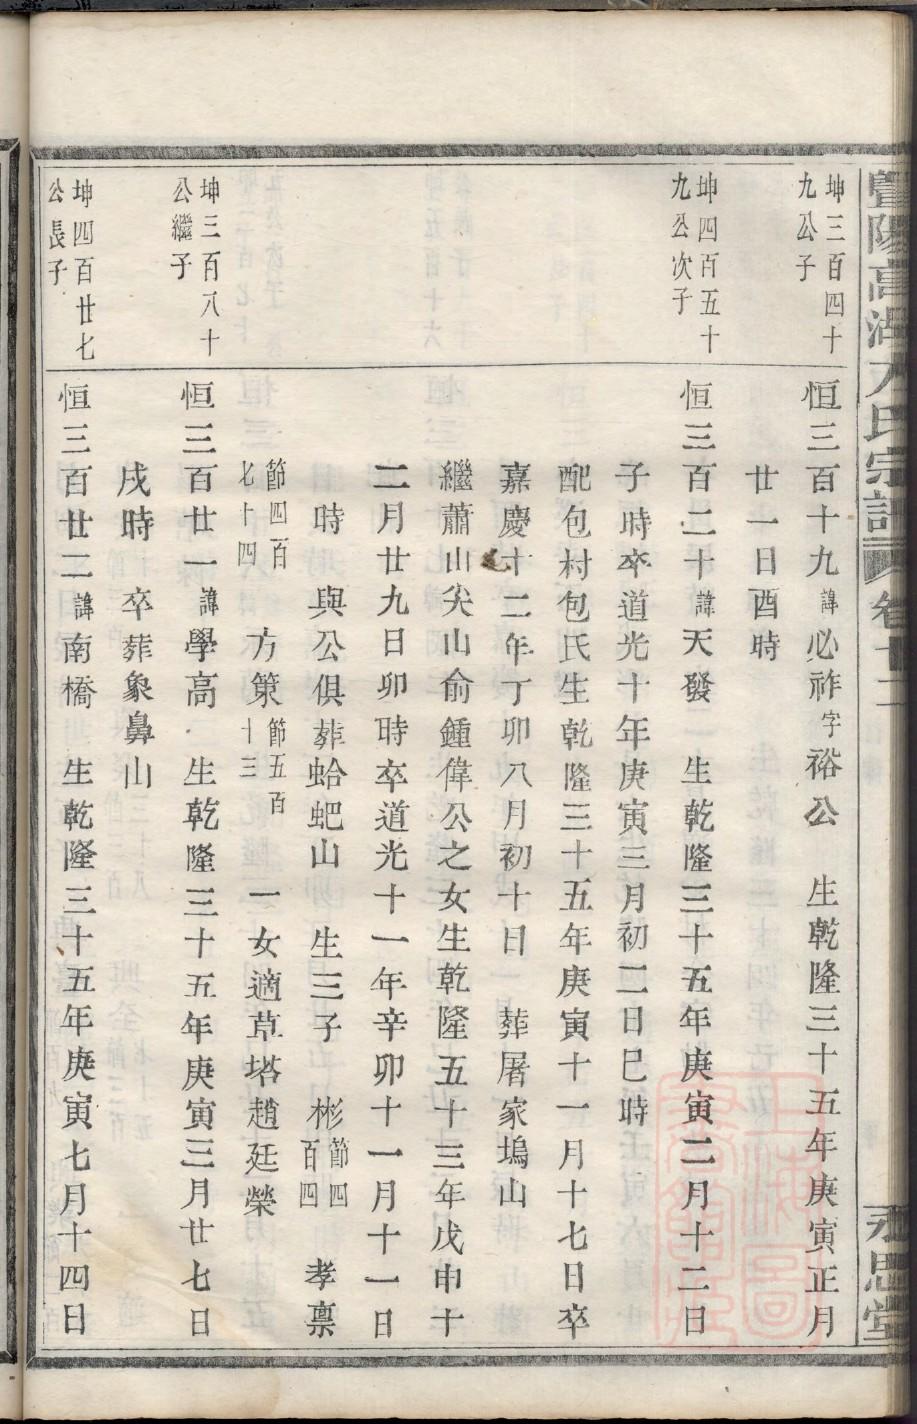 暨陽高湖方氏宗譜 卷十二 永思堂
坤三百四十
九公子
恒三百十九諱必祚字裕公 生乾隆三十五年庚寅正月
廿一日酉時
坤四百五十
九公次子
恒三百二十諱天發 生乾隆三十五年庚寅二月十二日
子時卒道光十年庚寅三月初二日巳時
配包村包氏生乾隆三十五年庚寅十一月十七日卒
嘉慶十二年丁卯八月初十日 葬屠家塢山
繼蕭山尖山俞鍾偉公之女生乾隆五十三年戊申十
二月廿九日卯時卒道光十一年辛卯十一月十一日
時 與公俱葬蛤蚆山 生三子 彬節四百四 孝禀
節四百七十四 方策節五百十三 一女適草塔趙廷榮
坤三百八十
公繼子
恒三百廿一諱學高 生乾隆三十五年庚寅三月廿七日
戌時 卒葬象鼻山
坤四百廿七
公長子
恒三百廿二諱南橋 生乾隆三十五年庚寅七月十四日